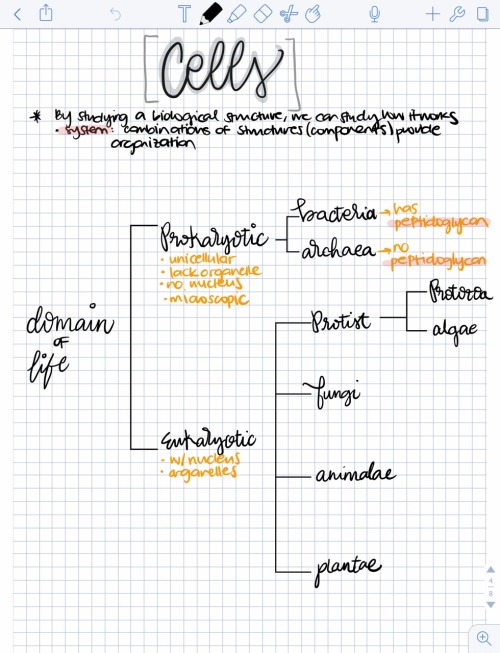 [Cells]
* By studying a biological structure, we can study how it works
• system: combinations of structures (components) provide
organization
domain
OF
life
Prokaryotic
• unicellular
• lack organelle
• no nucleus
• microscopic
bacteria → has
peptidoglycan
archaea → no
peptidoglycan
Eukaryotic
• w/ nucleus
• organelles
Protist
Protozoa
algae
fungi
animalae
plantae
4
8